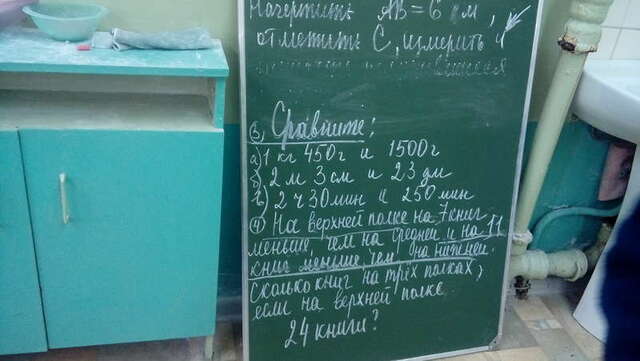 Начертить AB = 6 см,
отметить C, измерить и
③ Сравните:
а) 1 кг 450 г и 1500 г
б) 2 м 3 см и 23 дм
в) 2 ч 30 мин и 250 мин
④ На верхней полке на 7 книг
меньше, чем на средней и на 11
книг меньше, чем на нижней.
Сколько книг на трёх полках,
если на верхней полке
24 книги?